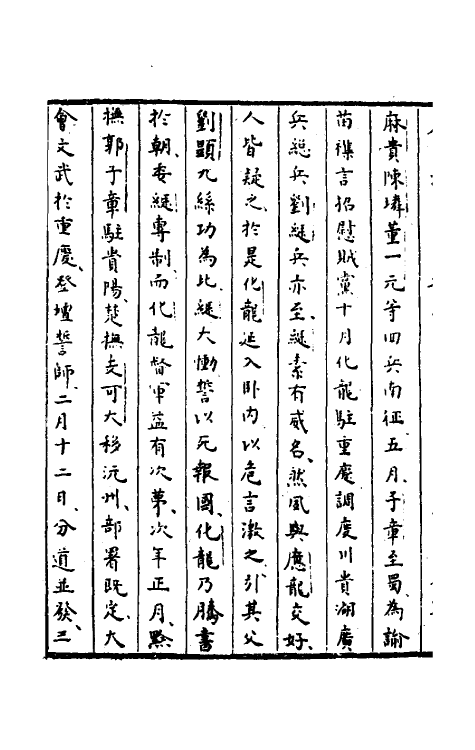 麻貴陳璘董一元等回兵南征五月子章至蜀為諭
苗襍言招慰賊黨十月化龍駐重慶調度川貴湖廣
兵總兵劉綎兵亦至綎素有威名然風與應龍交好
人皆疑之於是化龍延入卧内以危言激之引其父
劉顯九絲功為比綎大慟誓以死報國化龍乃騰書
於朝委綎專制而化龍督軍益有次第次年正月黔
撫郭子章駐貴陽楚撫支可大移沅州部署既定大
會文武於重慶登壇誓師二月十二日分道並發三